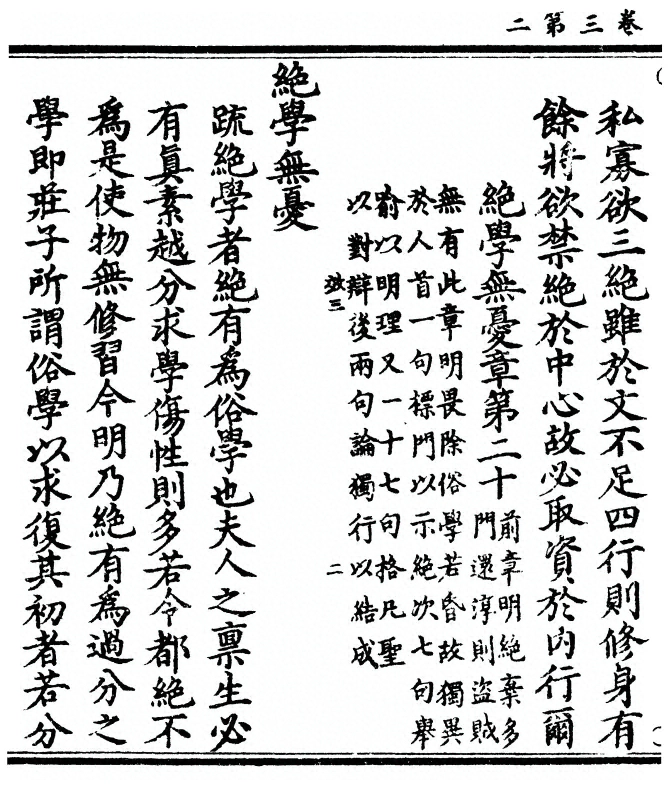 卷三第二
私寡欲三絕雖於文不足四行則修身有
餘將欲禁絕於中心故必取資於內行爾
絕學無憂章第二十
前章明絕棄多
門還淳則盜賊
無有此章明畏除俗學若昏故獨異
於人首一句標門以示絕次七句舉
喻以明理又一十七句格凡聖
以對辯後兩句論獨行以結成
效三 二
絕學無憂
疏絕學者絕有爲俗學也夫人之稟生必
有眞素越分求學傷性則多若令都絕不
爲是使物無修習今明乃絕有爲過分之
學即莊子所謂俗學以求復其初者若分